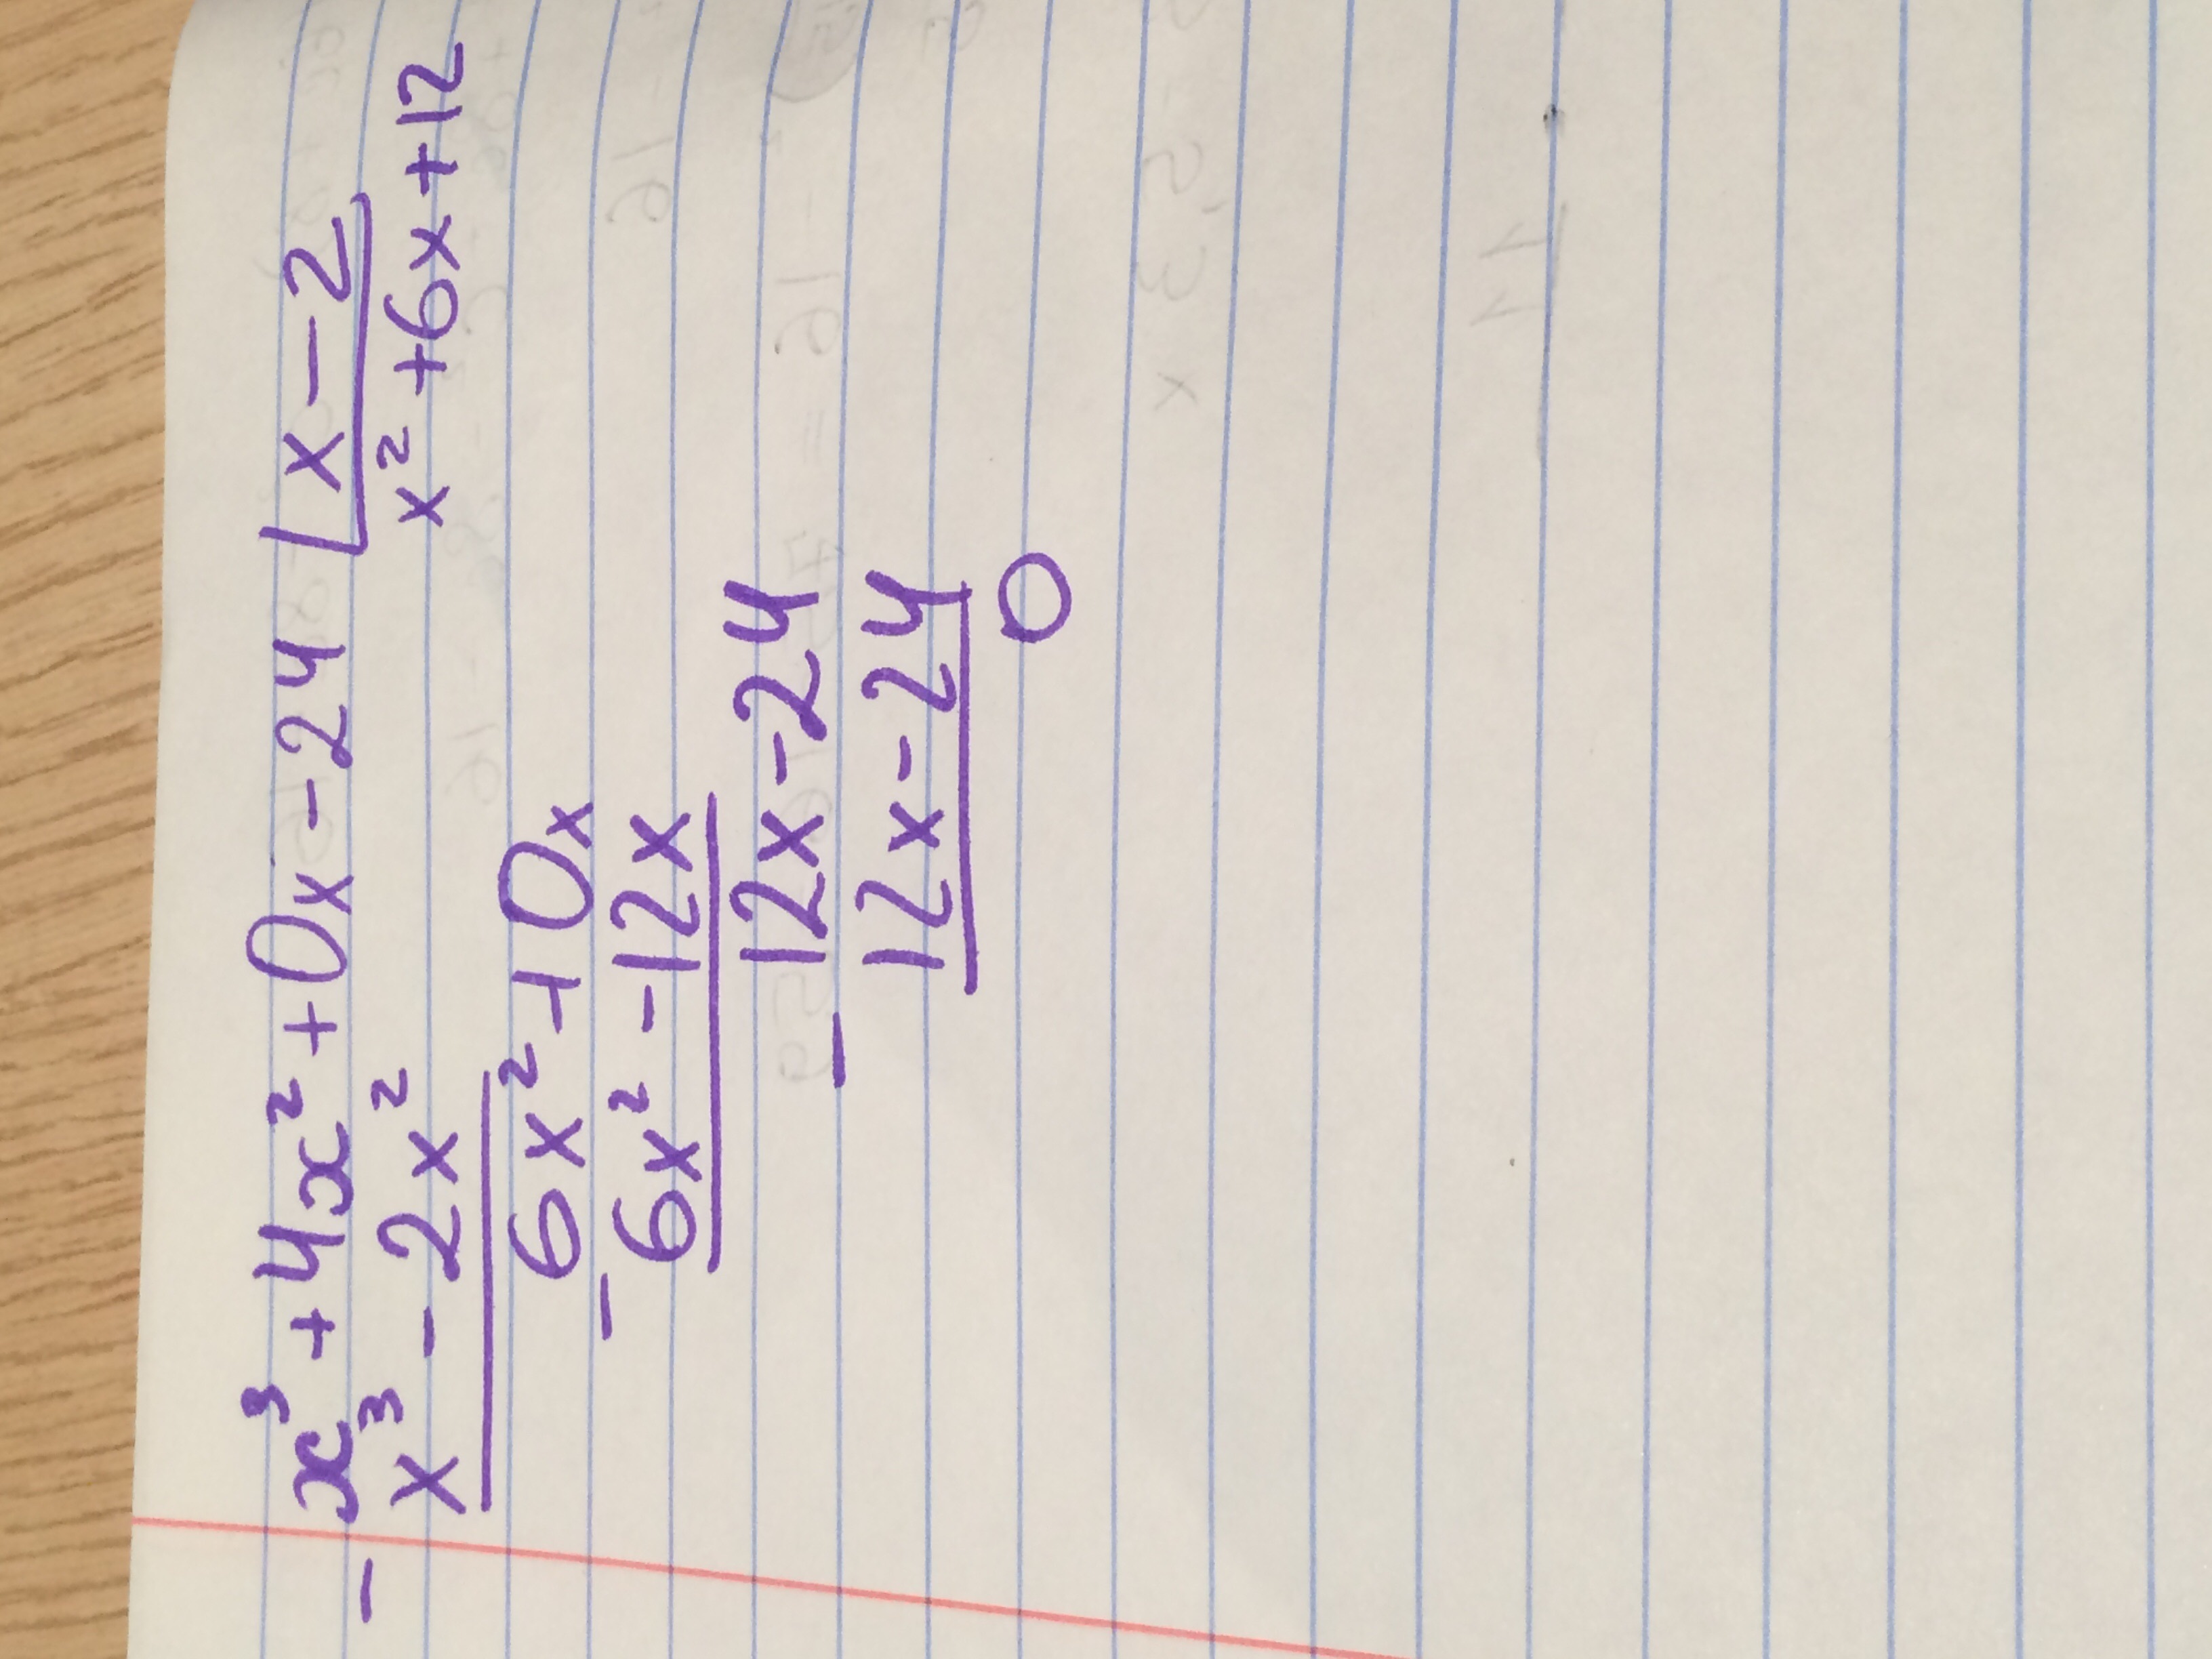 - x³ + 4x² + 0x - 24 | x - 2
x³ - 2x² x² + 6x + 12
- 6x² + 0x
6x² - 12x
- 12x - 24
12x - 24
0